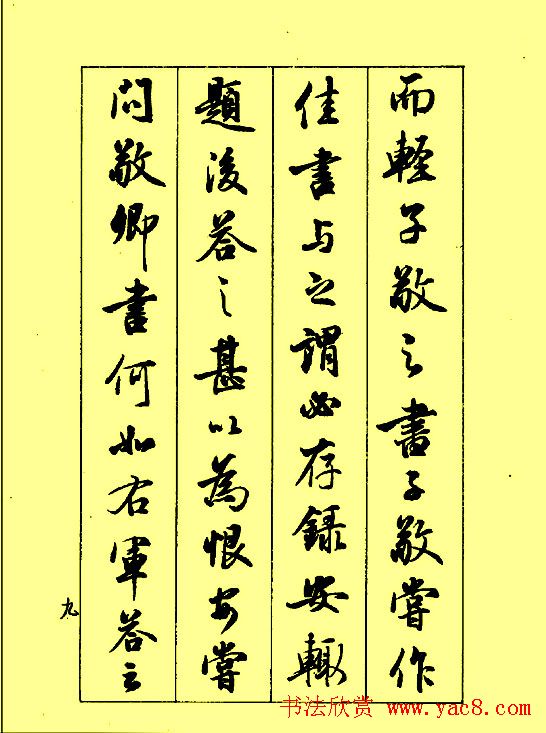 而輕子敬之書子敬嘗作
佳書与之謂必存錄安輙
題後答之甚以為恨安嘗
問敬卿書何如右軍答云
九
书法欣赏 www.yac8.com